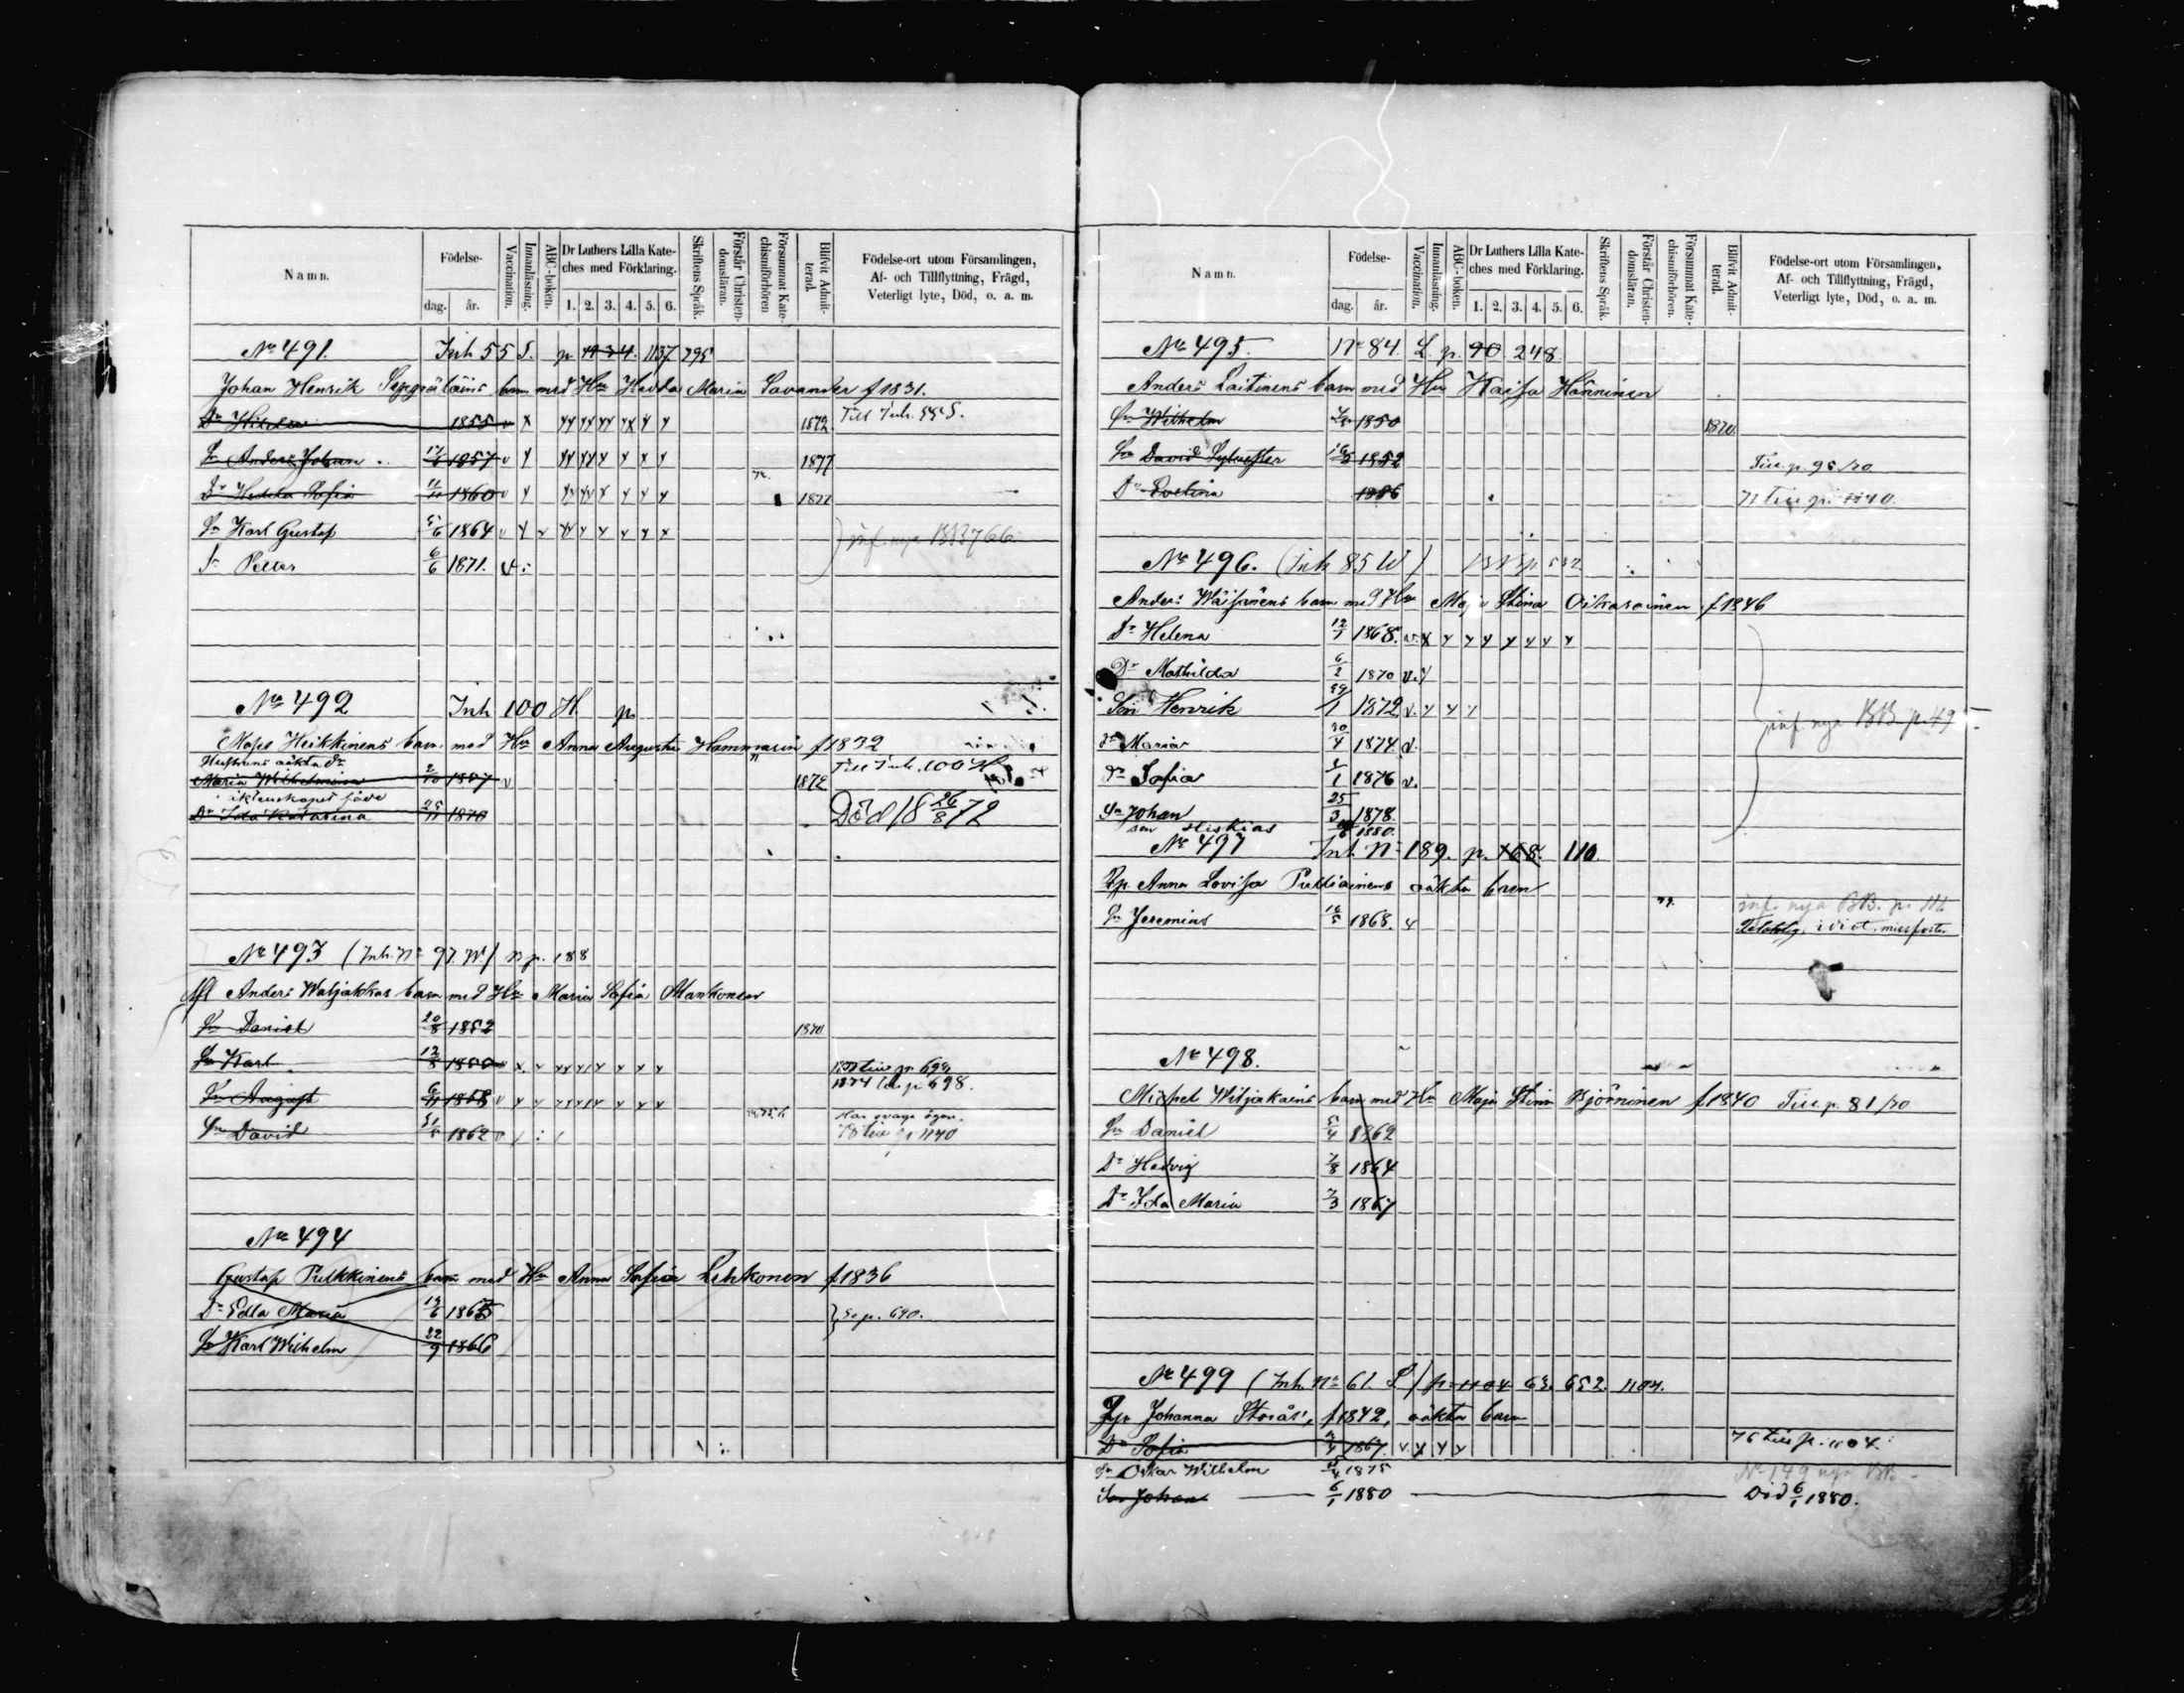 Namn.
Födelse-
dag. år.
Vaccination.
Innanläsning.
ABC-boken.
Dr Luthers Lilla Kateches med Förklaring.
1. 2. 3. 4. 5. 6.
Skriftens Språk.
Förstår Christendomsläran.
Försummat Katechismiförhören
Blifvit Admitterad.
Födelse-ort utom Församlingen,
Af- och Tillflyttning, Frägd,
Veterligt lyte, Död, o. a. m.
No 491. Inh 55 S. p 1137 795
Johan Henrik barn med Hu Hedda Maria Savander f 1831.
Dr Hilda 1855 v x 1872 Till Inh. 55 S.
Sn Anders Johan 1857 v 1877
Dr Hedda Sofia 11/11 1860 v 1877
Sn Karl Gustaf 5/6 1864 v
Sn Petter 6/6 1871. v.
inf. nya BB 766
No 492 Inh 100 H. p
Mops Heikkinens barn med Hu Anna Augusta Hammarin f 1832
Hustruns oäkta Dr
Maria Wilhelmina 1857 v 1872 Till Inh. 100 H
i äktenskapet föde
Dr Ida Katarina 25/11 1870 Död 18 26/8 72
No 493 (Inh. No 97. W.) n p. 188
Afl Anders Watjakkas barn med Hu Maria Sofia Mankonen
Sn Daniel 20/8 1852 1870.
Sn Karl 12/8 1850 p. 698
Sn August 6/11 1858 v 1874 p. 698.
Sn David 31/5 1862 v Har svaga ögon.
1140
No 494
Gustaf Pulkkinens barn med Hu Anna Sofia Lehkonen f 1836
Dr Edla Maria 1865
Sn Karl Wilhelm 22/9 1866
Se p. 690.
Namn.
Födelse-
dag. år.
Vaccination.
Innanläsning.
ABC-boken.
Dr Luthers Lilla Kateches med Förklaring.
1. 2. 3. 4. 5. 6.
Skriftens Språk.
Förstår Christendomsläran.
Försummat Katechismiförhören.
Blifvit Admitterad.
Födelse-ort utom Församlingen,
Af- och Tillflyttning, Frägd,
Veterligt lyte, Död, o. a. m.
No 495. No 84. L p. 90 248.
Anders Laitinens barn med Hu Kaisa Hänninen
Sn Wilhelm 1850 1870.
Sn David Sylvester 1852 p. 95/70
Dr Evelina 1856 1140.
No 496. (Inh 85 W)
Anders Wäisänens barn med Hu Maja Stina Oikarainen f 1846
Dr Helena 12/1 1868. v. x
Dr Mathilda 6/2 1870 v.
Son Henrik 29/1 1872 v.
Dr Maria 30/4 1874 v.
Dr Sofia 1876 v.
Sn Johan 25/3 1878.
Son Hiskias 1880.
inf. nya BB p. 49
No 497 Inh. No 189. p. 168. 110.
Pp. Anna Lovisa oäkta barn
Sn Jeremias 1868. inf. nya BB. p. 111
idiot, missfoster
No 498.
Michel Witjakains barn med Hu Maja Stina Björninen f 1840 p. 81/70
Sn Daniel 5/4 1862
Dr Hedvig 7/8 1864
Dr Ida Maria 1867
No 499 (Inh. No 61. S) p 1104 63. 652. 1104.
Pp. Johanna Storås, f 1842, oäkta barn
Dr Sofia 1867. v 76 p. 1104.
Sn Oskar Wilhelm 1875 No 149 nya BB
Son Johan 6/1 1880 Död 6/1 1880.